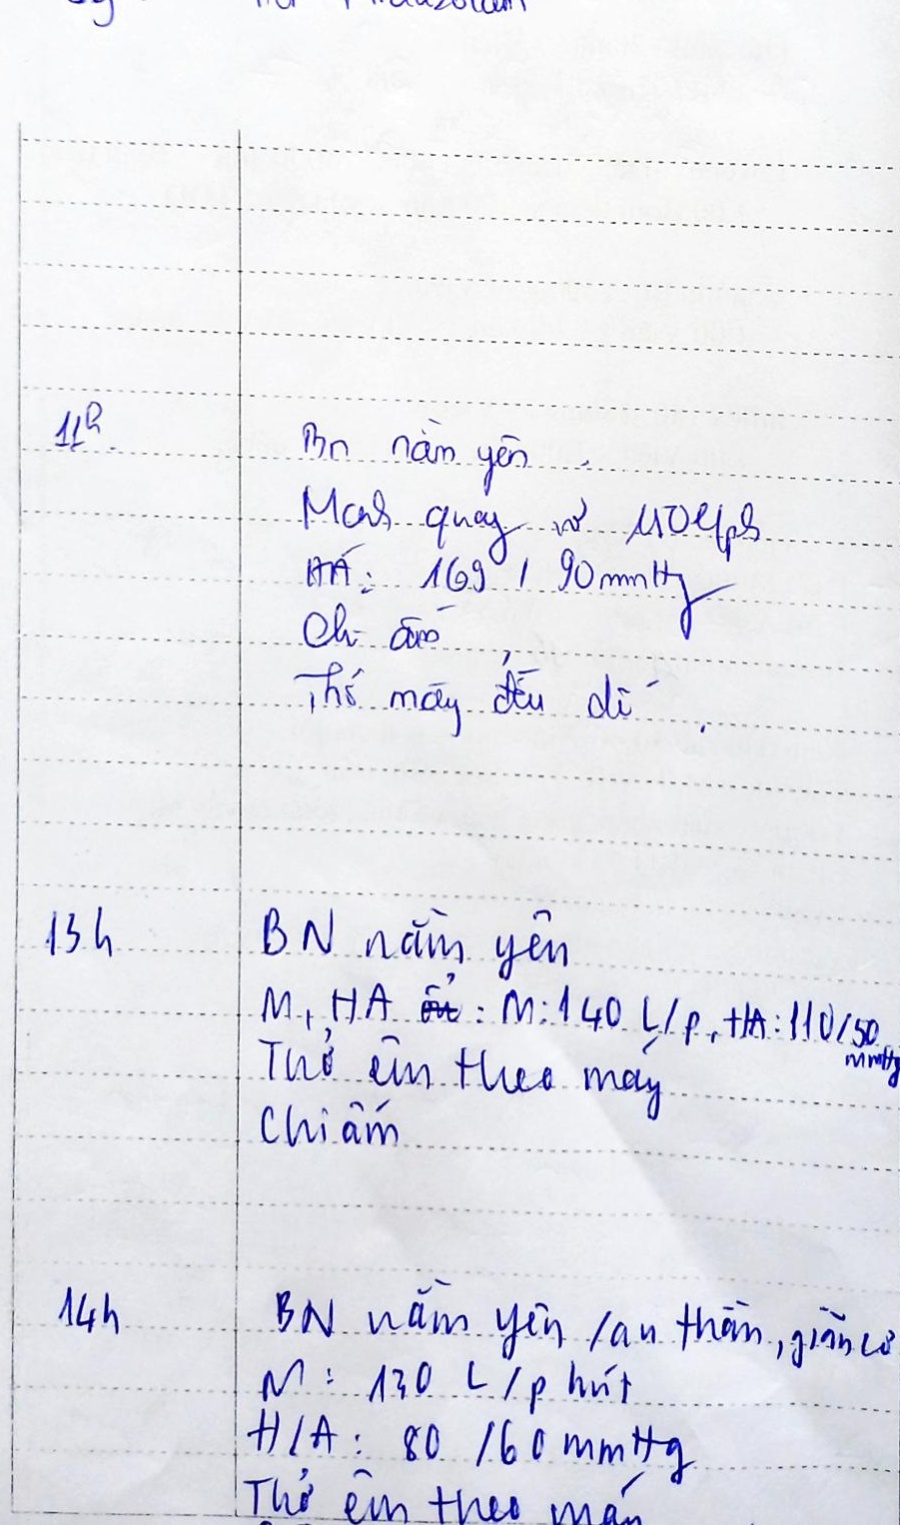 Midazolam
11h
Bn nằm yên.
Mạch quay rõ 140l/ph
HA: 169 / 90mmHg
Chi ấm
Thở máy đều dễ.
13h BN nằm yên
M, HA : M: 140 L/p, HA: 110/50 mmHg
Thở êm theo máy
Chi ấm
14h BN nằm yên /an thần, giãn cơ
M: 130 L/phút
H/A: 80 /60 mmHg
Thở êm theo máy